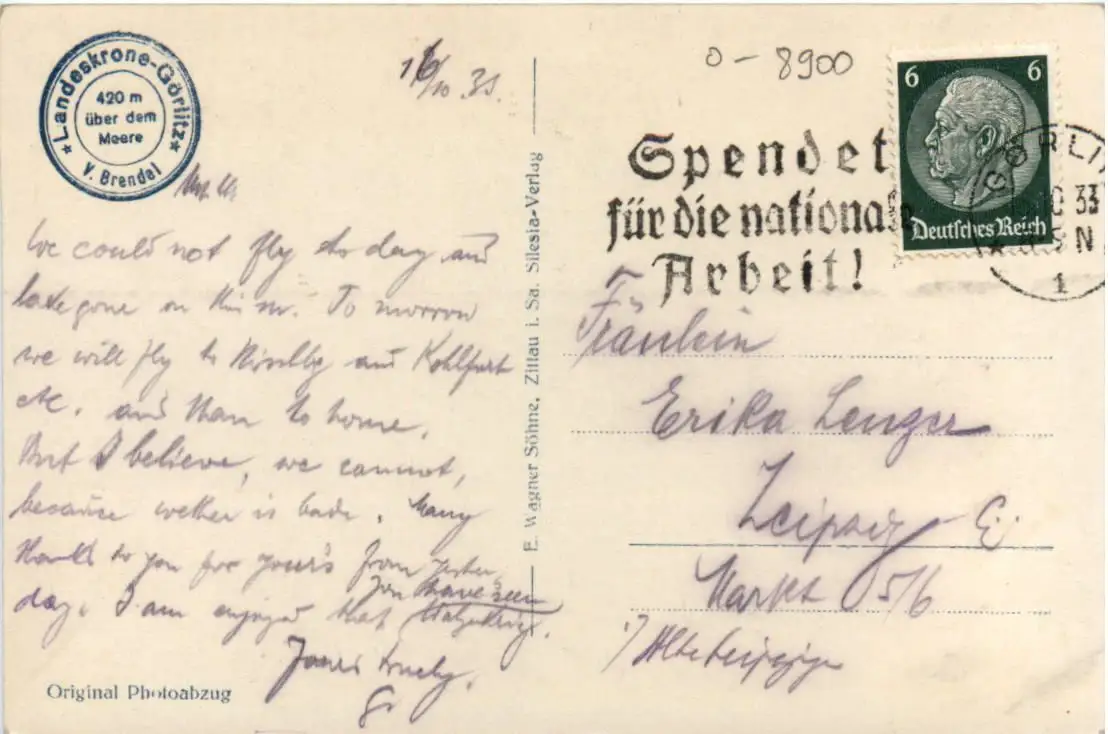 Landeskrone-Görlitz
420 m
über dem
Meere
V. Brendel
16/10.33.
0-8900
6 6
Deutsches Reich
Spendet
für die nationale
Arbeit!
GÖRLITZ
10 33
N
1
We could not fly to day and
have gone on this m. To morrow
we will fly to and Kohlfurt
etc. and than to home.
But I believe, we cannot,
because wether is bade. Many
thanks to you for yours from yester-
day. I am enjoyed that you have seen
Yours truely,
G.
Original Photoabzug
E. Wagner Söhne, Zittau i. Sa. Silesia-Verlag
Fräulein
Erika Lenger
Leipzig C.
Markt 5/6